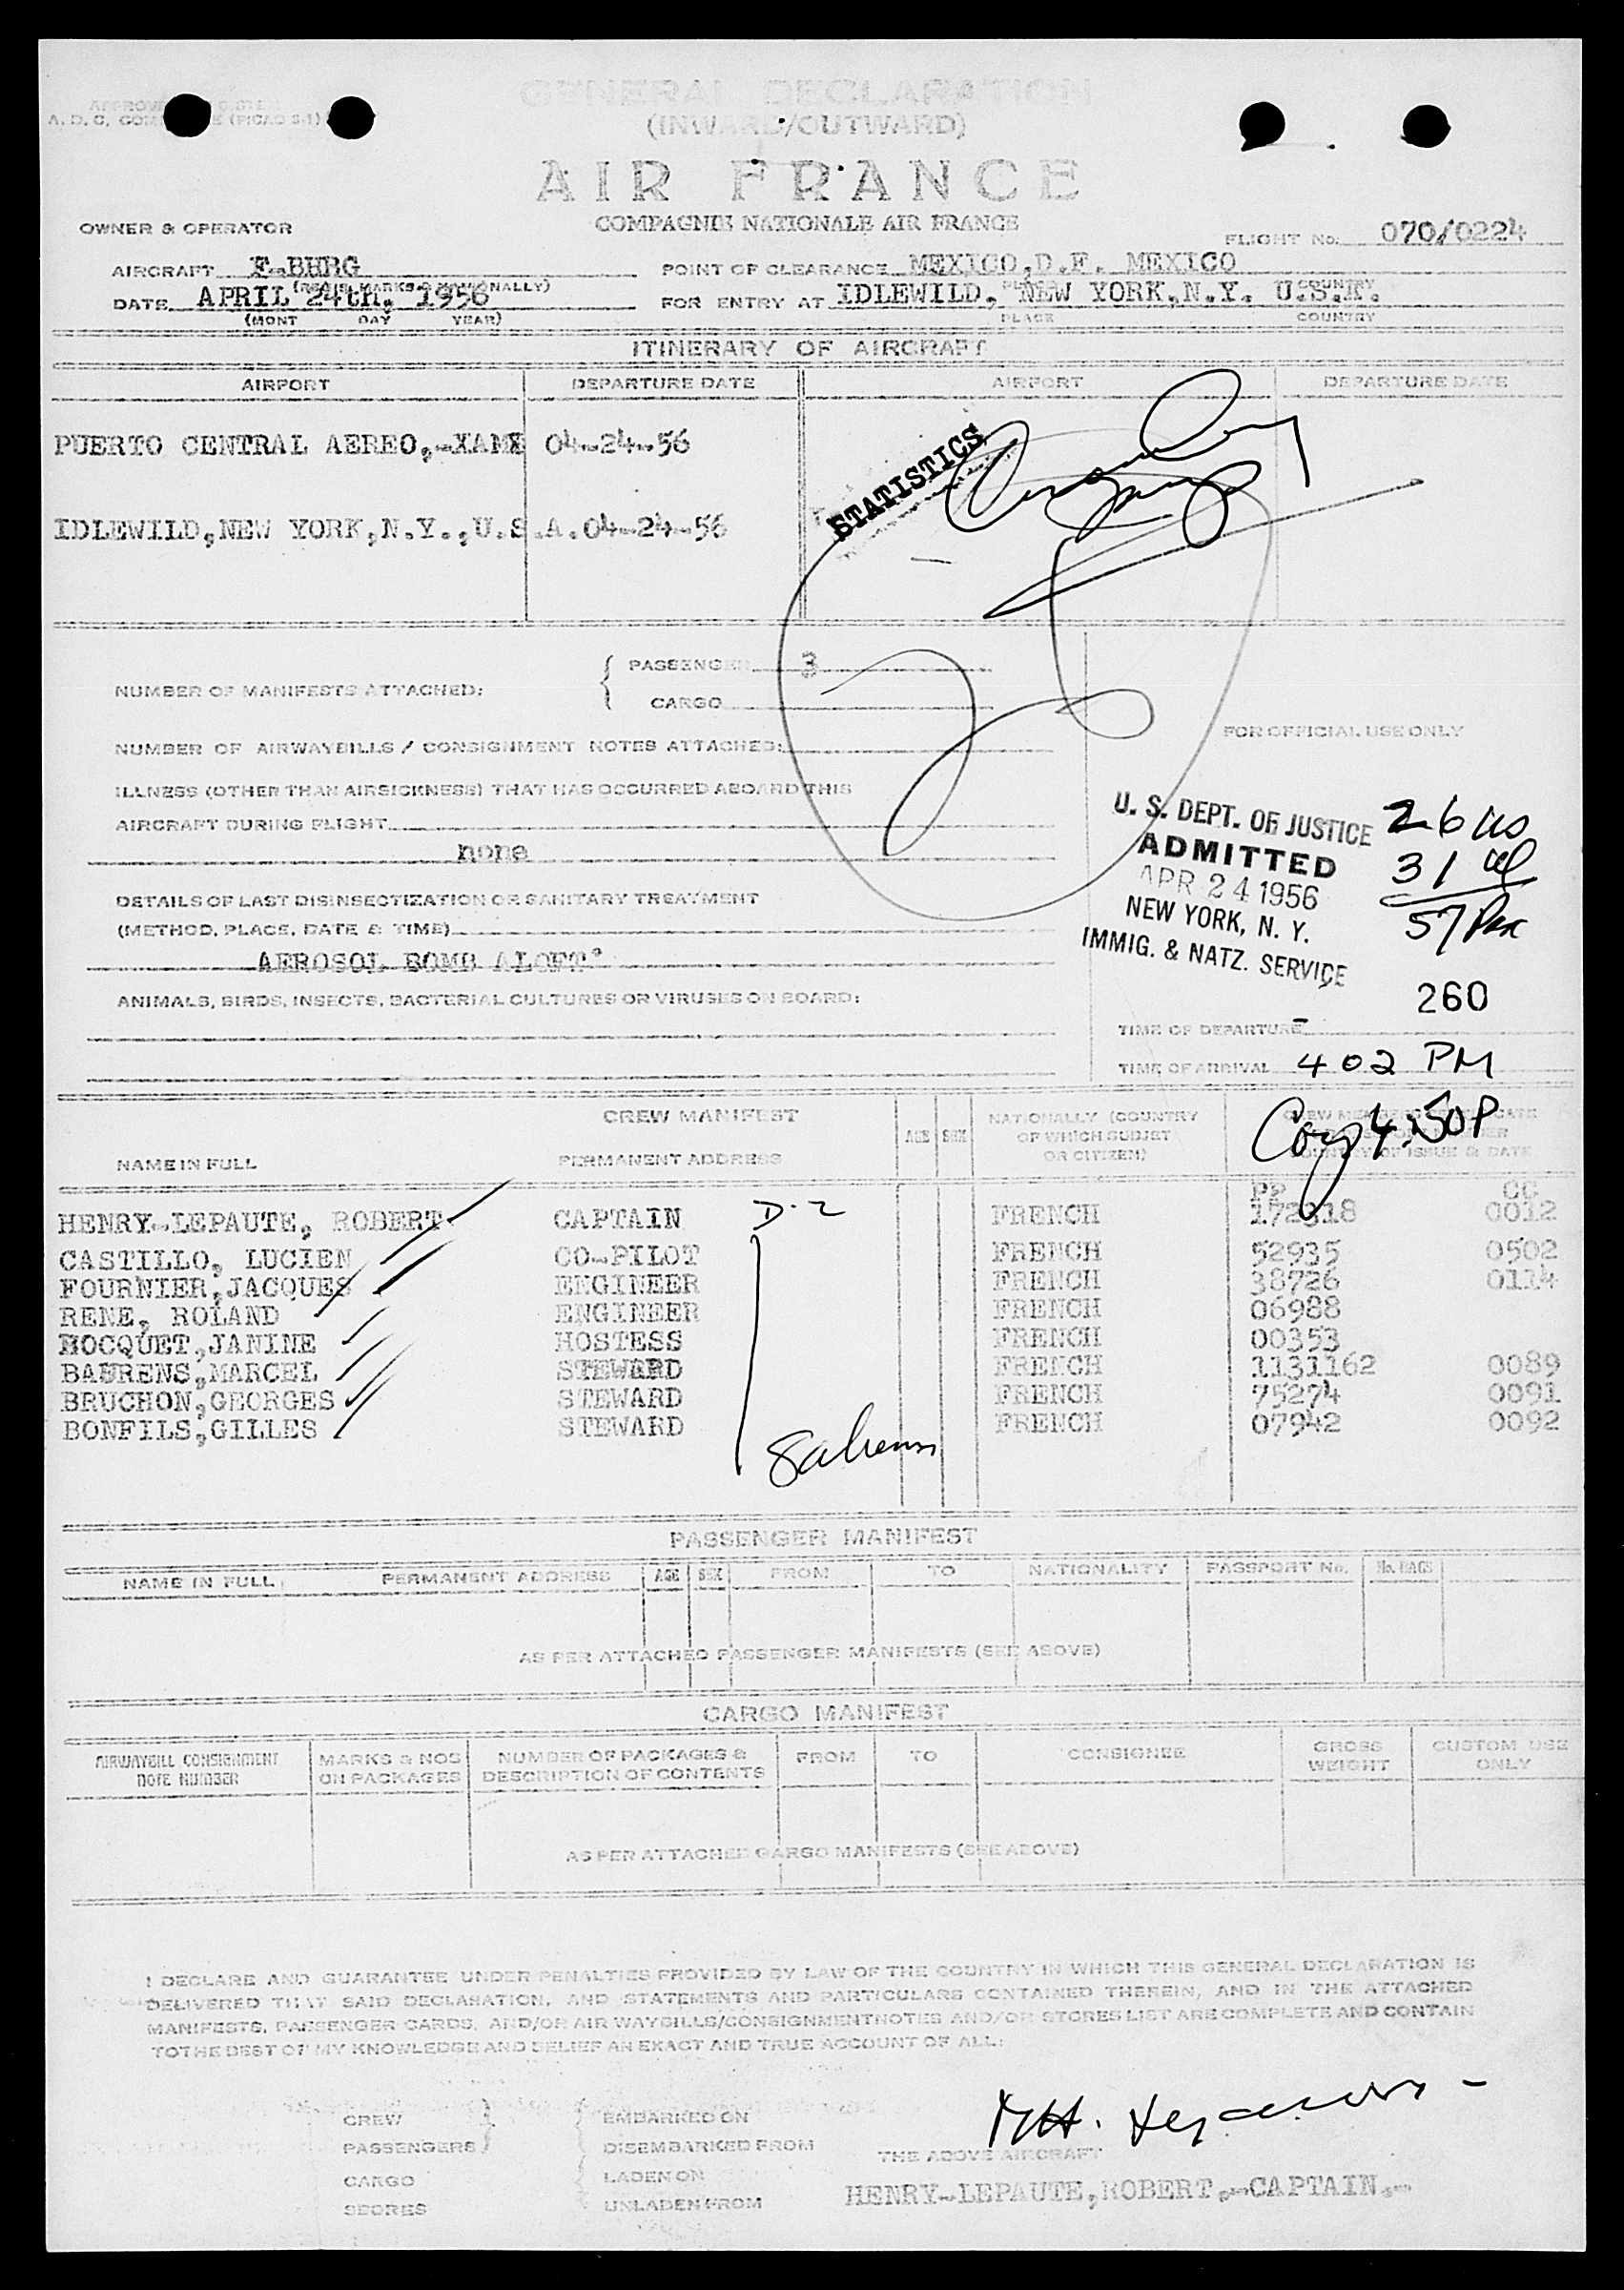 GENERAL DECLARATION
(INWARD/OUTWARD)
AIR FRANCE
COMPAGNIE NATIONALE AIR FRANCE
OWNER & OPERATOR
FLIGHT No. 070/0224
AIRCRAFT F-BHRG
POINT OF CLEARANCE MEXICO,D.F. MEXICO
DATE APRIL 24th, 1956
FOR ENTRY AT IDLEWILD, NEW YORK,N.Y. U.S.A.
(MONT DAY YEAR)
PLACE COUNTRY
ITINERARY OF AIRCRAFT
AIRPORT DEPARTURE DATE AIRPORT DEPARTURE DATE
PUERTO CENTRAL AEREO,-XAMX 04-24-56
STATISTICS
IDLEWILD,NEW YORK,N.Y.,U.S.A. 04-24-56
NUMBER OF MANIFESTS ATTACHED:
PASSENGER 3
CARGO
FOR OFFICIAL USE ONLY
NUMBER OF AIRWAYBILLS / CONSIGNMENT NOTES ATTACHED:
ILLNESS (OTHER THAN AIRSICKNESS) THAT HAS OCCURRED ABOARD THIS
AIRCRAFT DURING FLIGHT
none
U. S. DEPT. OF JUSTICE
ADMITTED
APR 24 1956
NEW YORK, N. Y.
IMMIG. & NATZ. SERVICE
26 us
31 al
57 Pax
260
DETAILS OF LAST DISINSECTIZATION OR SANITARY TREATMENT
(METHOD, PLACE, DATE & TIME)
AEROSOL BOMB ALOFT
ANIMALS, BIRDS, INSECTS, BACTERIAL CULTURES OR VIRUSES ON BOARD:
TIME OF DEPARTURE
TIME OF ARRIVAL 402 PM
4:50P
CREW MANIFEST
NAME IN FULL PERMANENT ADDRESS AGE SEX NATIONALLY (COUNTRY OF WHICH SUBJET OR CITIZEN)
PP CC
HENRY-LEPAUTE, ROBERT CAPTAIN D-2 FRENCH 172318 0012
CASTILLO, LUCIEN CO-PILOT FRENCH 52935 0502
FOURNIER,JACQUES ENGINEER FRENCH 38726 0114
RENE, ROLAND ENGINEER FRENCH 06988
HOCQUET,JANINE HOSTESS FRENCH 00353
BAHRENS,MARCEL STEWARD FRENCH 1131162 0089
BRUCHON,GEORGES STEWARD FRENCH 75274 0091
BONFILS,GILLES STEWARD FRENCH 07942 0092
PASSENGER MANIFEST
NAME IN FULL PERMANENT ADDRESS AGE SEX FROM TO NATIONALITY PASSPORT No. No. BAGS
AS PER ATTACHED PASSENGER MANIFESTS (SEE ABOVE)
CARGO MANIFEST
AIRWAYBILL CONSIGNMENT NOTE NUMBER MARKS & NOS ON PACKAGES NUMBER OF PACKAGES & DESCRIPTION OF CONTENTS FROM TO CONSIGNEE GROSS WEIGHT CUSTOM USE ONLY
AS PER ATTACHED CARGO MANIFESTS (SEE ABOVE)
I DECLARE AND GUARANTEE UNDER PENALTIES PROVIDED BY LAW OF THE COUNTRY IN WHICH THIS GENERAL DECLARATION IS
DELIVERED THAT SAID DECLARATION, AND STATEMENTS AND PARTICULARS CONTAINED THEREIN, AND IN THE ATTACHED
MANIFESTS, PASSENGER CARDS, AND/OR AIR WAYBILLS/CONSIGNMENTNOTES AND/OR STORES LIST ARE COMPLETE AND CONTAIN
TO THE BEST OF MY KNOWLEDGE AND BELIEF AN EXACT AND TRUE ACCOUNT OF ALL:
CREW EMBARKED ON
PASSENGERS DISEMBARKED FROM
THE ABOVE AIRCRAFT
CARGO LADEN ON
HENRY-LEPAUTE,ROBERT,-CAPTAIN.-
SEORES UNLADEN FROM